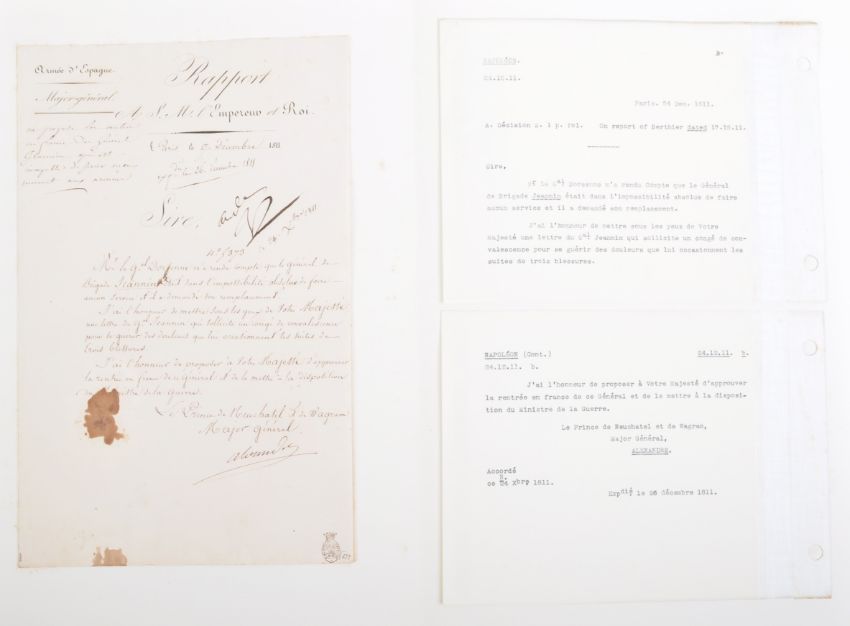 Armée d'Espagne.
Rapport
Major-général.
A S. M. l'Empereur et Roi.
Paris le 17 Décembre 1811
Sire,
N° 5973
Mr. le Gal. Dorsenne m'a rendu compte que le général de
Brigade Jeannin était dans l'impossibilité absolue de faire
aucun service et il a demandé son remplacement.
J'ai l'honneur de mettre sous les yeux de Votre Majesté
une lettre du Gal. Jeannin qui sollicite un congé de convalescence
pour se guérir des douleurs que lui occasionnent les suites de
trois blessures.
J'ai l'honneur de proposer à Votre Majesté d'approuver
la rentrée en france de ce Général et de le mettre à la disposition
du Ministre de la Guerre.
Le Prince de Neuchatel et de Wagram
Major Général,
Alexandre
NAPOLÉON.
24.12.11.
Paris. 24 Dec. 1811.
A. Décision N. 1 p. fol. On report of Berthier dated 17.12.11.
Sire,
Mr le Gal Dorsenne m'a rendu Compte que le Général
de Brigade Jeannin était dans l'impossibilité absolue de faire
aucun service et il a demandé son remplacement.
J'ai l'honneur de mettre sous les yeux de Votre
Majesté une lettre du Gal Jeannin qui sollicite un congé de con-
valescence pour se guérir des douleurs que lui occasionnent les
suites de trois blessures.
NAPOLÉON (Cont.) 24.12.11. B.
24.12.11. b.
J'ai l'honneur de proposer à Votre Majesté d'approuver
la rentrée en france de ce Général et de le mettre à la disposi-
tion du Ministre de la Guerre.
Le Prince de Neuchatel et de Wagram,
Major Général,
ALEXANDRE.
Accordé
N.
ce 24 Xbre 1811.
Expdié le 26 décembre 1811.